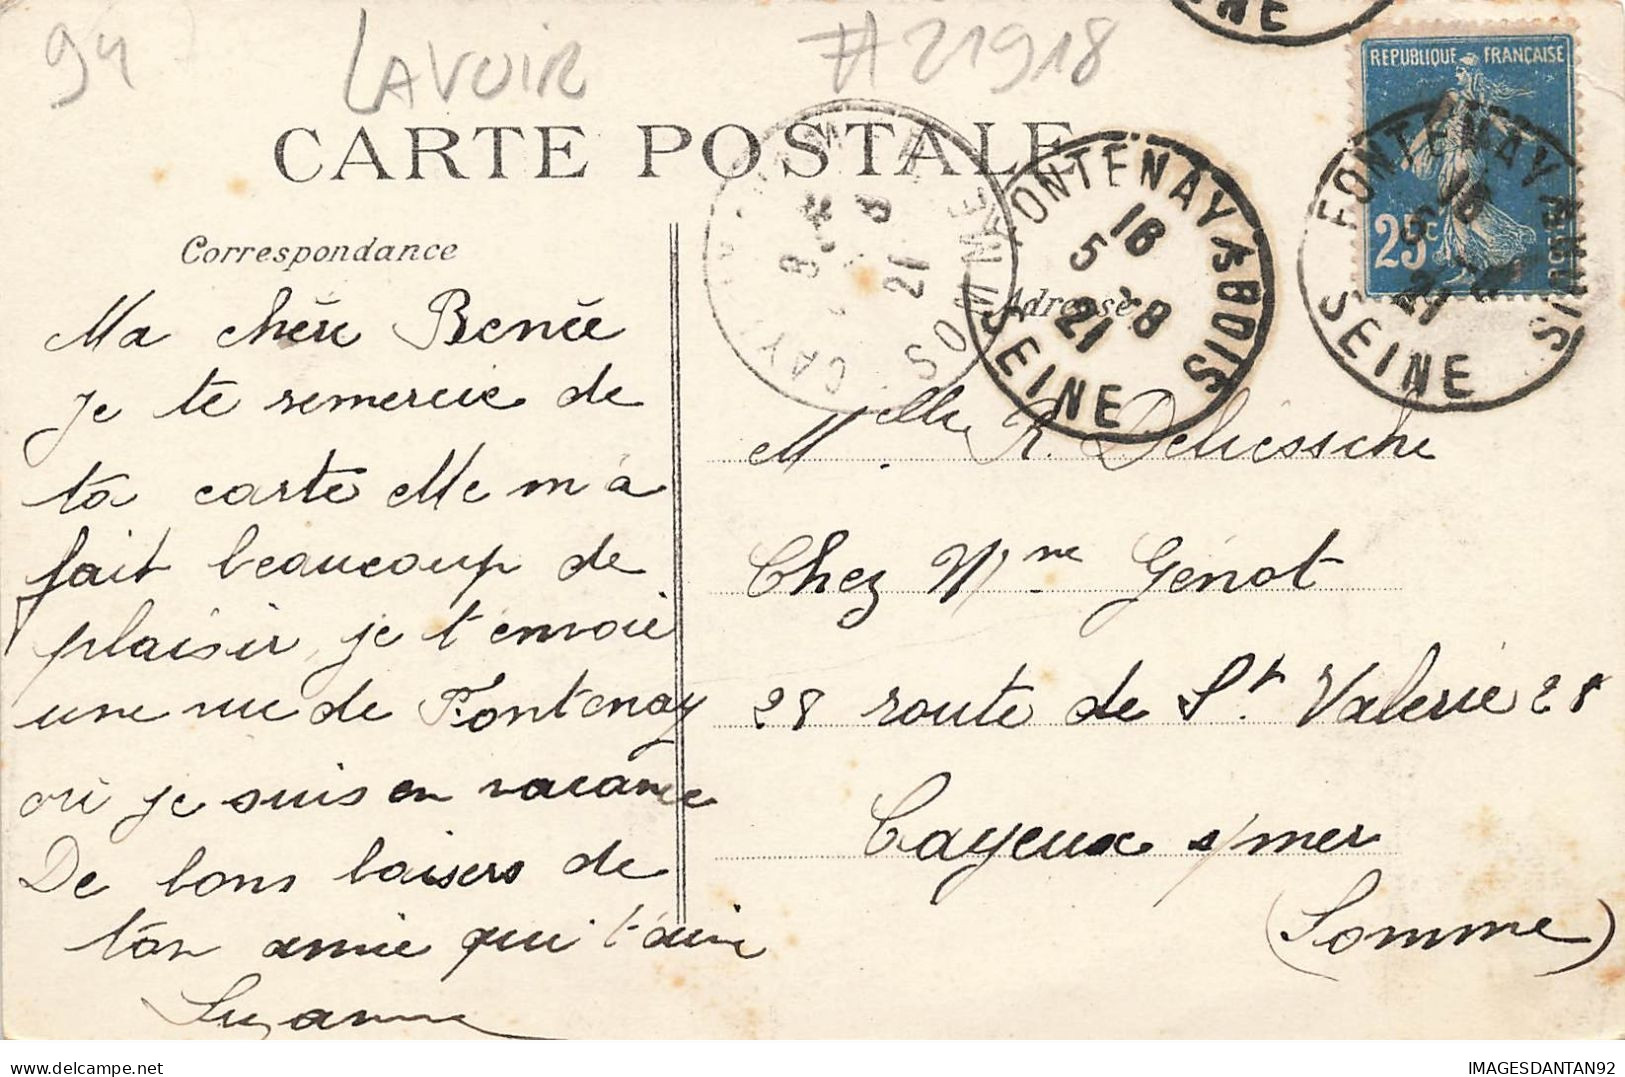 94 LAVOIR #21918
CARTE POSTALE
REPUBLIQUE FRANÇAISE
25c
FONTENAY S BOIS
18
5 -8
21
SEINE
FONTENAY S BOIS
18
5 -8
21
SEINE
CAYEUX S MER
8
21
SOMME
INE
Correspondance
Adresse
Ma chère Renée
je te remercie de
ta carte elle m'a
fait beaucoup de
plaisir, je t'envoie
une vue de Fontenay
où je suis en vacance
De bons baisers de
ton amie qui t'aime
Suzanne
Melle R. Deliessche
Chez Mme Génot
28 route de St. Valerie 28
Cayeux s/mer
(Somme)
IMAGESDANTAN92